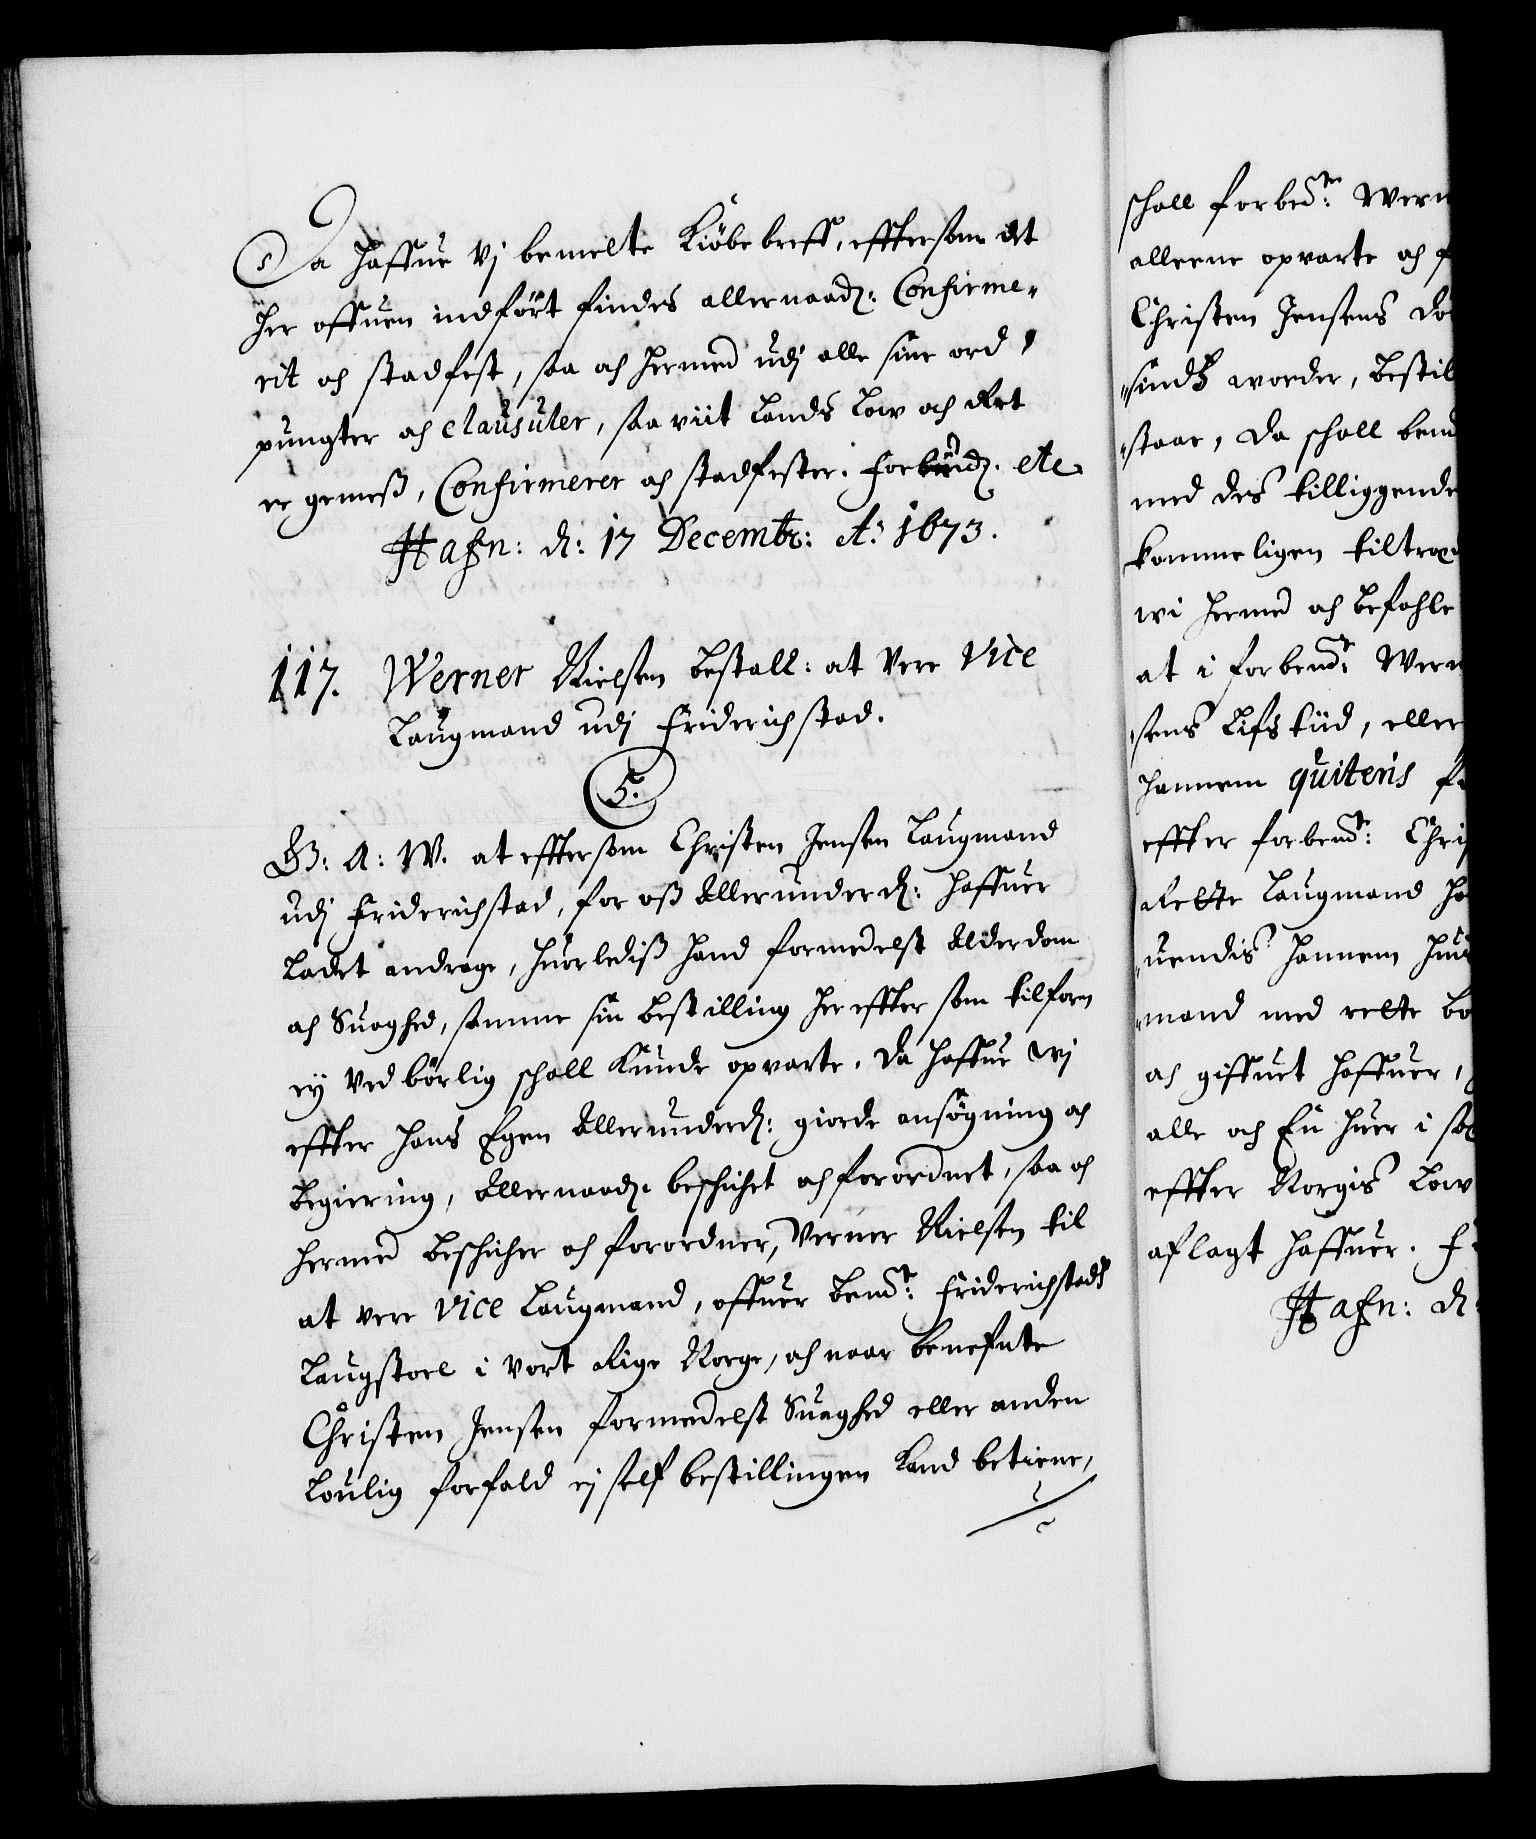 Da haffue Vj bemelte Kiöbebreff, efftersom det
her offuen indfört findes allernaadz: Confirme-
rit och stadfest, saa och hermed udj alle sine ord,
pungter och clausuler, saa viit Lands Low och Ret
er gemess, Confirmerer och stadfester. Forbiudz. etc
Hafn: d: 17 Decembr: Ao 1673.
117. Werner Nielsen bestall: at Vere Vice
Laugmand udj Friderichstad.
5.
G: A: W. at efftersom Christen Jensen Laugmand
udj Friderichstad, for oss Allerunderd: haffuer
Ladet andrage, huorlediss hand formedelst Alderdom
och Suaghed, samme sin bestilling her effter som tilforn
ey Ved börlig schall Kunde opvarte. Da haffue Wj
effter hans Egen Allerunderd: giorde ansögning och
begiering, Allernaadz. beschichet och forordnet, saa och
hermed beschicher och forordner, Verner Nielsen til
at vere Vice Laugmand, offuer bemte: Friderichstads
Laugstoel i Vort Rige Norge, och naar benefnte
Christen Jensen formedelst Suaghed eller anden
Loulig forfald ej self bestillingen kand betiene,
schall forbedte: Wern
alleene opvarte och f
Christen Jensens Dö
sinds worder, bestil
staar, Da schall bem
med des tilliggende
kommeligen tiltræ
wi hermed och befahle
at i forbemdte: Wern
sens Lifs tiid, eller
hannem quiteris f
effter forbemdte: Chri
Rette Laugmand ha
uendis hannem hui
mand med rette bö
och giffuet haffuer,
alle och En huer i sæ
effter Norgis Low
aflagt haffuer. F
Hafn: d: